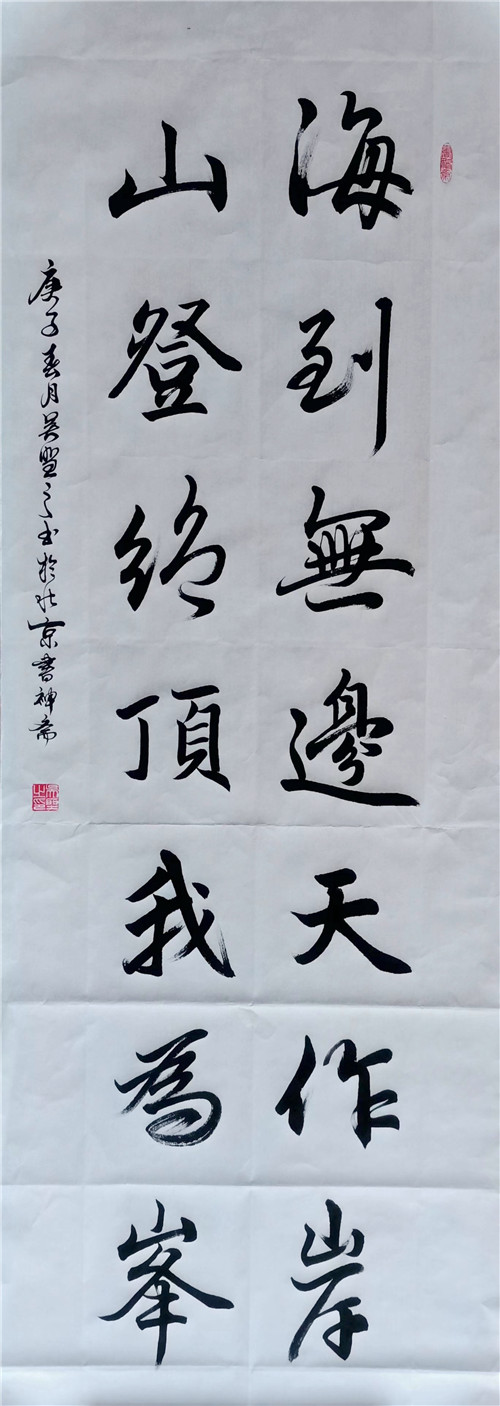 海到無邊天作岸
山登絶頂我為峯
庚子春月吴聖之书於北京書神齋